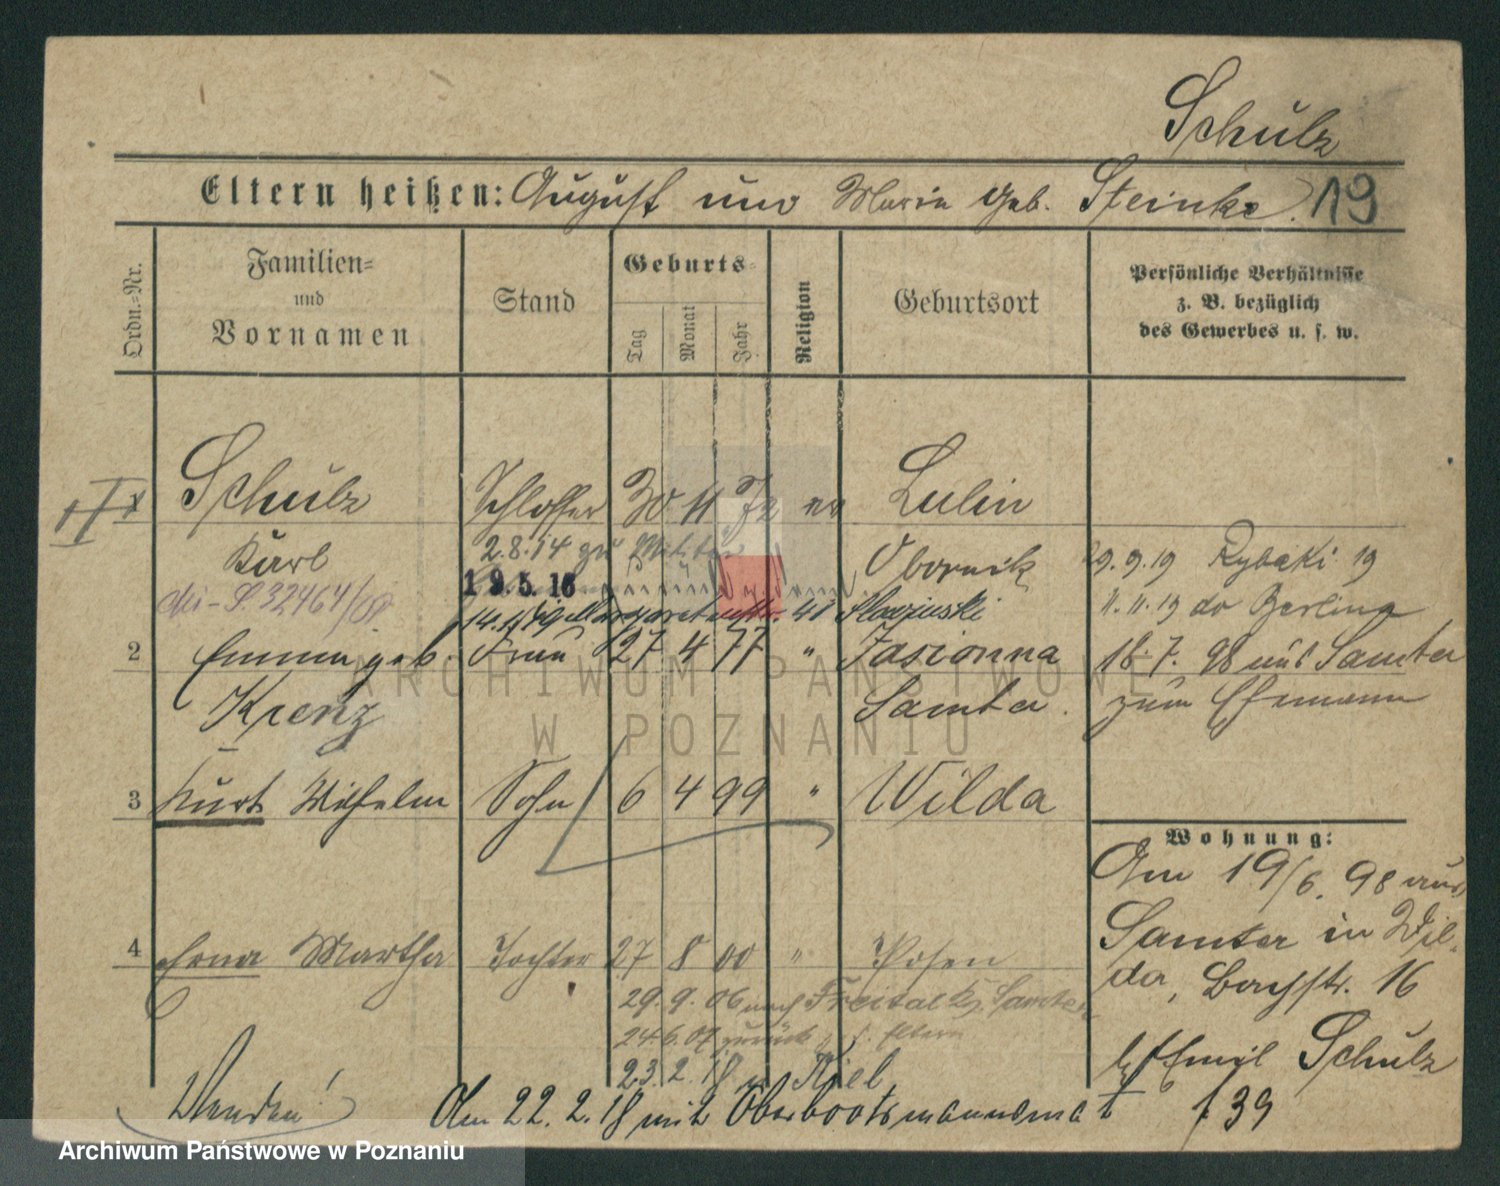 Schulz
Eltern heißen: August und Marie geb. Steinke. 19
Ordn.-Nr.
Familien-
und
Vornamen
Stand
Geburts-
Tag
Monat
Jahr
Religion
Geburtsort
Persönliche Verhältnisse
z. B. bezüglich
des Gewerbes u. s. w.
Schulz Schlosser 30 11 72 ev Lulin
Karl 2.8.14 zu Militär Obornik 29.9.19 Rybaki 19
19.5.16
11.11.19 do Berlina
2 Emma geb. Frau 27 4 77 " Jasionna 18.7.98 aus Samter
Krenz Samter. zum Ehemann
3 Kurt Wilhelm Sohn 6 4 99 " Wilda
Wohnung:
Am 19/6. 98 aus
Samter in Wil-
da, Bachstr. 16
b/ Emil Schulz
4 Erna Martha Tochter 27 8 00 " Posen
29.9.06 nach Freital Samter
24.6.07 zurück z. d. Eltern
23.2.18 n Kiel
Wenden! Am 22.2.18 mit Oberbootsmannsmat f 39
ARCHIWUM PAŃSTWOWE
W POZNANIU
Archiwum Państwowe w Poznaniu